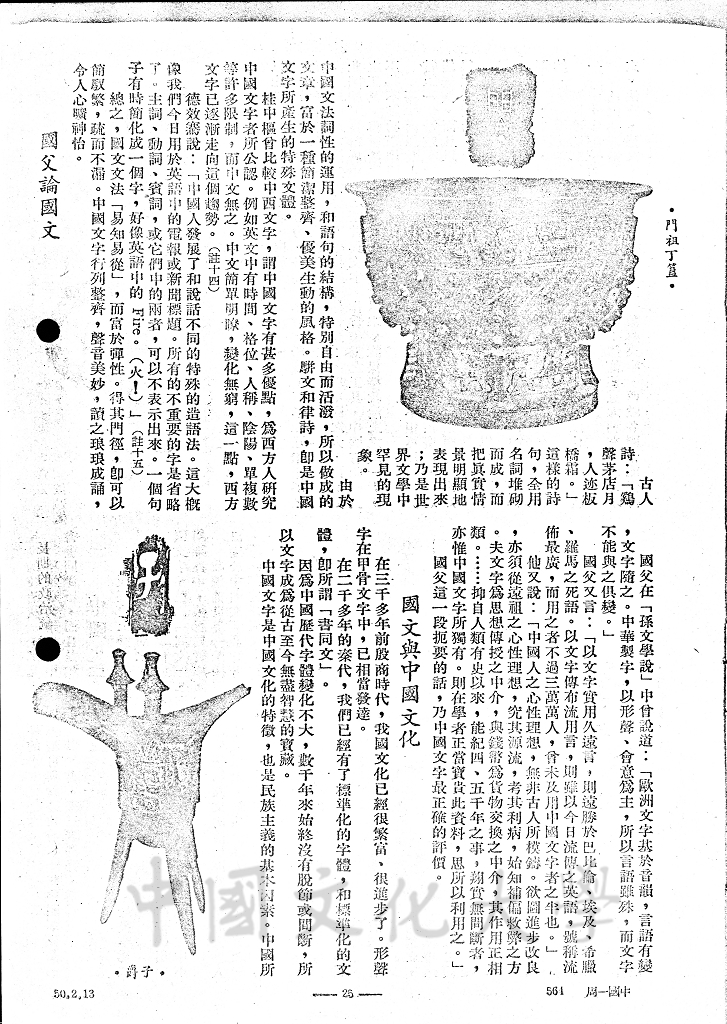 •門祖丁簋•
古人
詩：「鷄
聲茅店月
，人迹板
橋霜。」
這樣的詩
句，全用
名詞堆砌
而成，而
把眞實情
景明顯地
表現出來
；乃是世
界文學中
罕見的現
象。
由於
中國文法詞性的運用，和語句的結構，特別自由而活潑，所以做成的
文章，富於一種簡潔整齊、優美生動的風格。駢文和律詩，卽是中國
文字所產生的特殊文體。
桂中樞曾比較中西文字，謂中國文字有甚多優點，爲西方人研究
中國文字者所公認。例如英文中有時間、格位、人稱、陰陽、單複數
等許多限制，而中文無之。中文簡單明瞭，變化無窮，這一點，西方
文字已逐漸走向這個趨勢。（註十四）
德效騫說：「中國人發展了和說話不同的特殊的造語法。這大槪
像我們今日用於英語中的電報或新聞標題。所有的不重要的字是省略
了。主詞、動詞、賓詞，或它們中的兩者，可以不表示出來。一個句
子有時簡化成一個字，好像英語中的 Fire。（火！）」（註十五）
總之，國文文法「易知易從」，而富於彈性。得其門徑，卽可以
簡馭繁，疏而不漏。中國文字行列整齊，聲音美妙，讀之琅琅成誦，
令人心曠神怡。
國父論國文
國父在「孫文學說」中曾說道：「歐洲文字基於音韻，言語有變
，文字隨之。中華製字，以形聲、會意爲主，所以言語雖殊，而文字
不能與之俱變。」
國父又言：「以文字實用久遠言，則遠勝於巴比倫、埃及、希臘
、羅馬之死語。以文字傳布流用言，則雖以今日流傳之英語，號稱流
佈最廣，而用之者不過三萬萬人，曾未及用中國文字者之半也。」
他又說：「中國人之心性理想，無非古人所模鑄。欲圖進步改良
，亦須從遠祖之心性理想，究其源流，考其利病，始知補偏救弊之方
。夫文字爲思想傳授之中介，與錢幣爲貨物交換之中介，其作用正相
類。……抑自人類有史以來，能紀四、五千年之事，翔實無間斷者，
亦惟中國文字所獨有。則在學者正當寶貴此資料，思所以利用之。」
國父這一段扼要的話，乃中國文字最正確的評價。
國文與中國文化
在三千多年前殷商時代，我國文化已經很繁富、很進步了。形聲
字在甲骨文字中，已相當發達。
在二千多年的秦代，我們已經有了標準化的字體，和標準化的文
體，卽所謂「書同文」。
因爲中國歷代字體變化不大，數千年來始終沒有脫節或間斷，所
以文字成爲從古至今無盡智慧的寶藏。
中國文字是中國文化的特徵，也是民族主義的基本因素。中國所
•子爵•
中國文化
學
50.2.13
—25—
564
中國一周